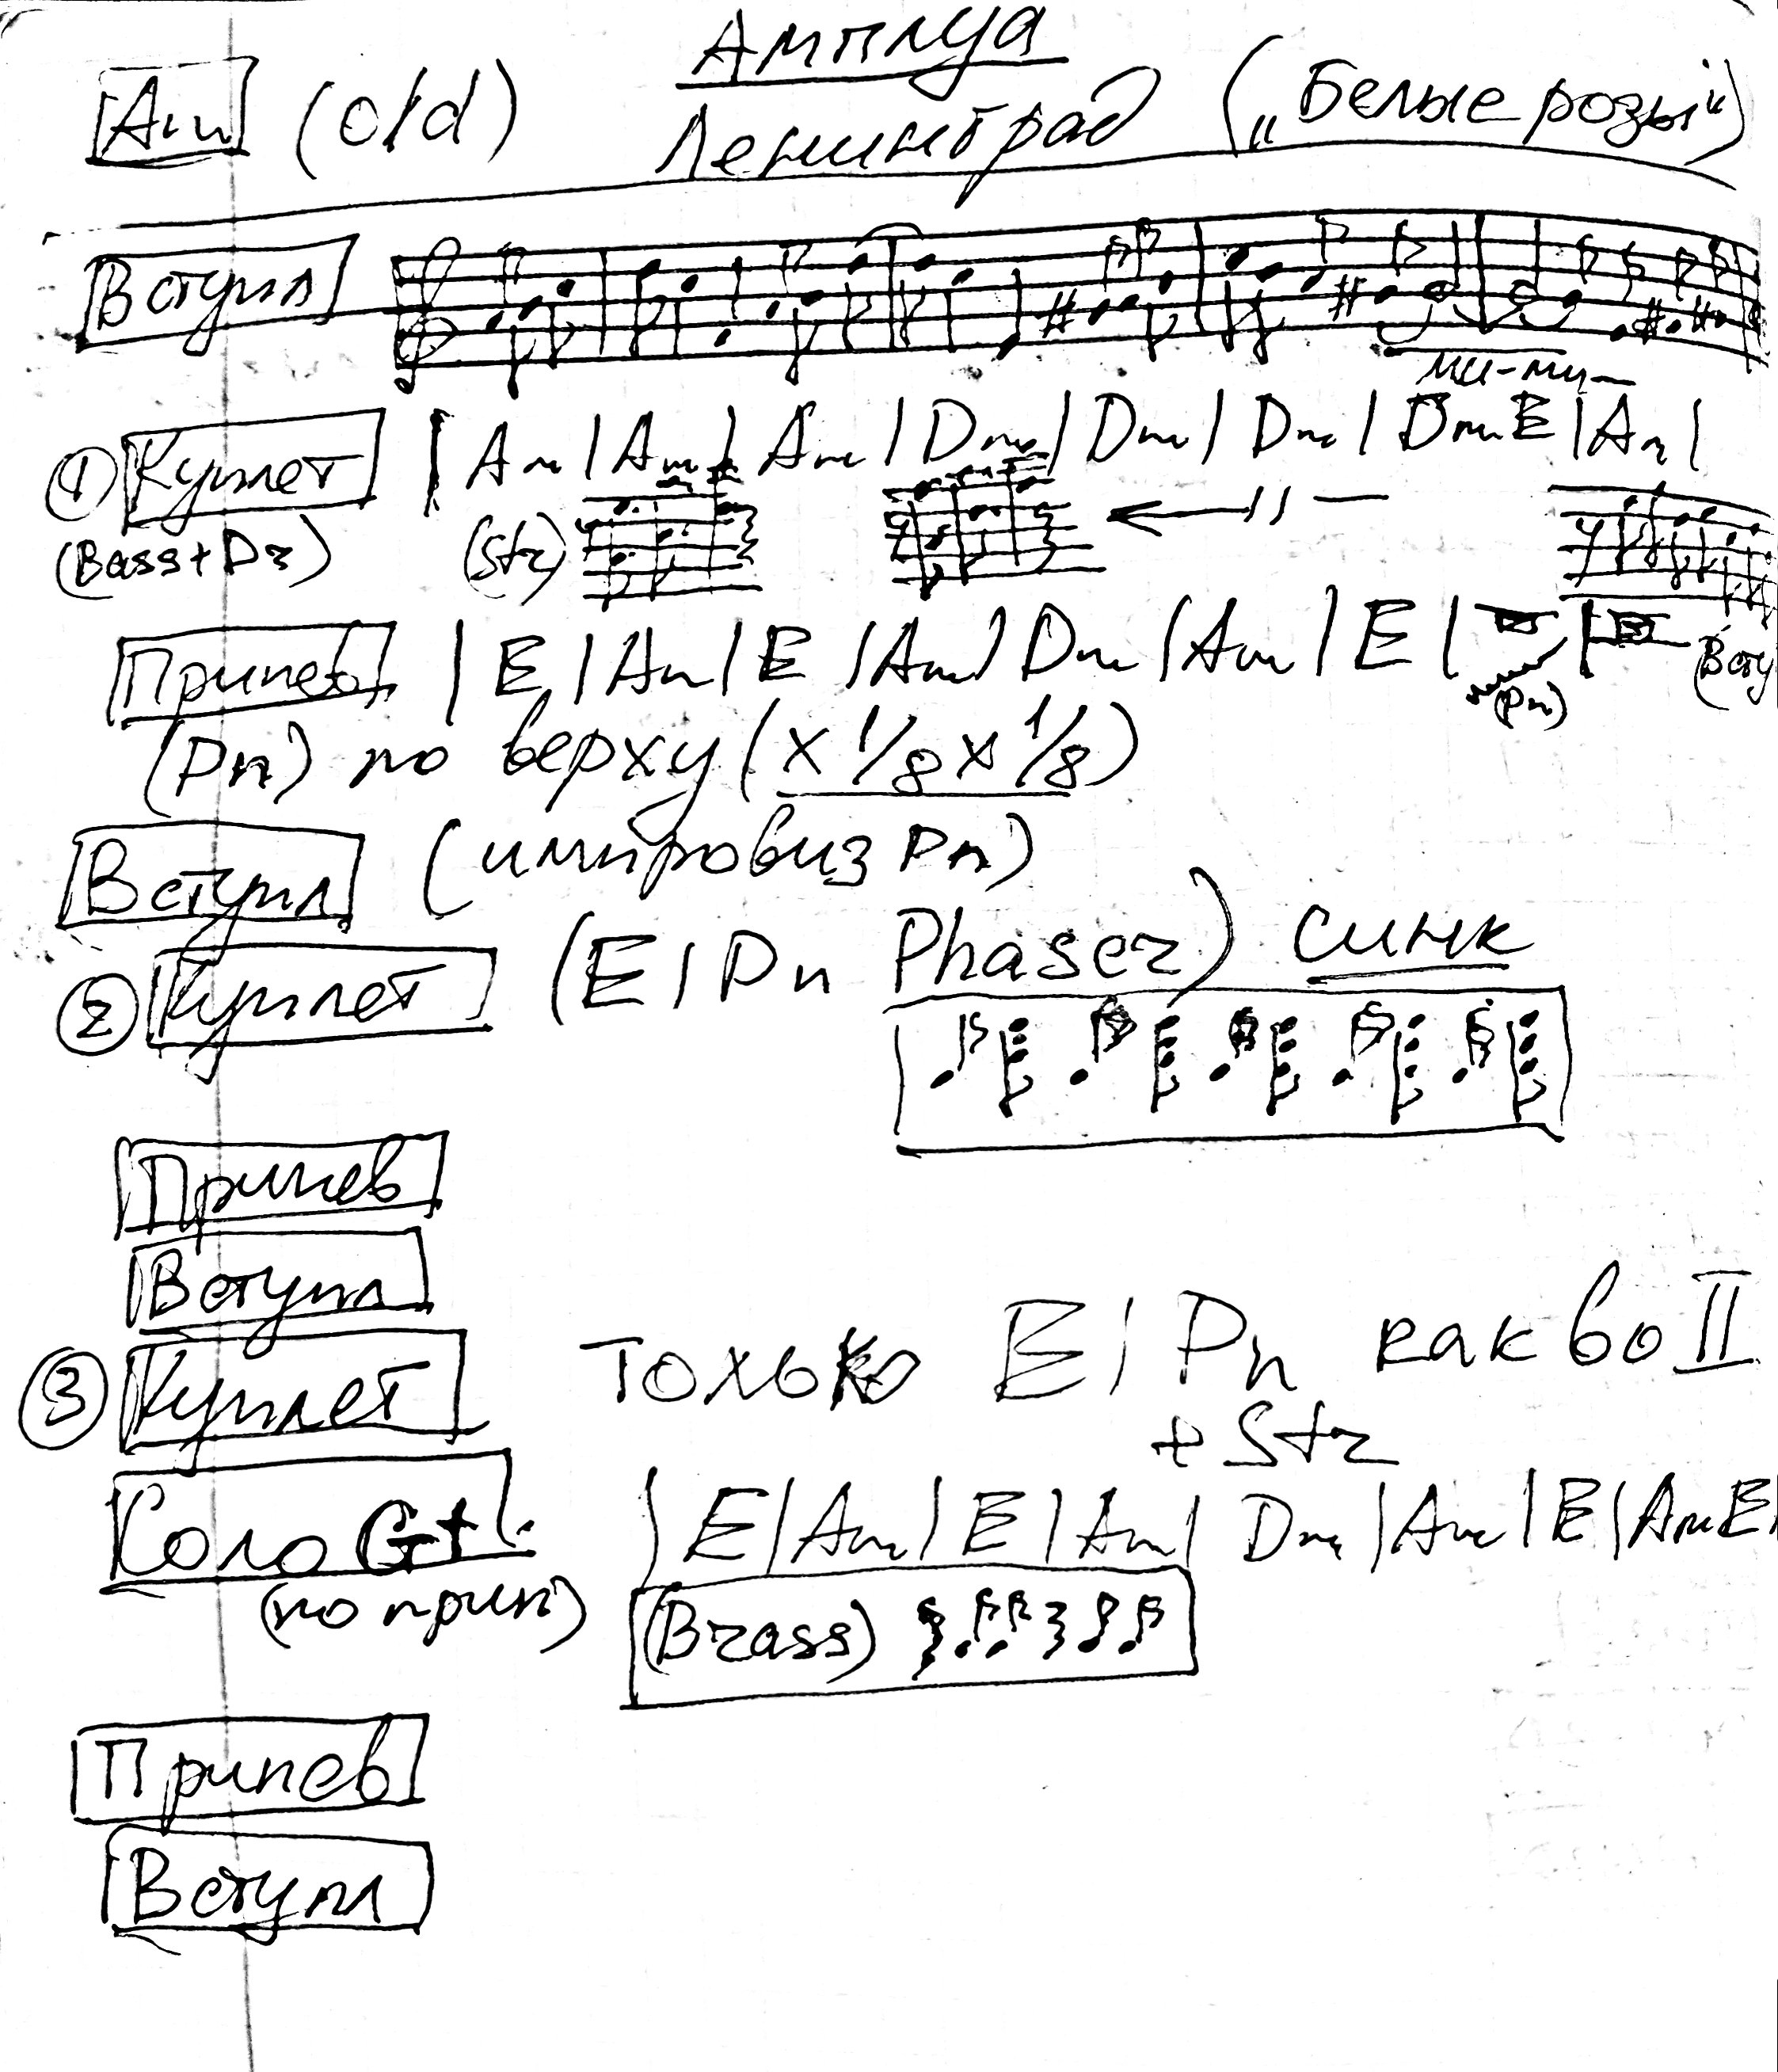 Амплуа
Am (old) Ленинград („Белые розы“)
Вступл
ми-ми-
① Куплет | Am | Am | Am | Dm | Dm | Dm | Dm E | Am |
(Bass+Dr) (Str) ← 〃 —
Припев | E | Am | E | Am | Dm | Am | E |
(Pn) (Всту
(Pn) по верху (х 1/8 х 1/8)
Вступл (импровиз Pn)
② Куплет (El Pn Phaser) синк
Припев
Вступл
③ Куплет только El Pn как во II
+ Str
Соло Gt. | E | Am | E | Am | Dm | Am | E | Am E |
(по прип) (Brass)
Припев
Вступл